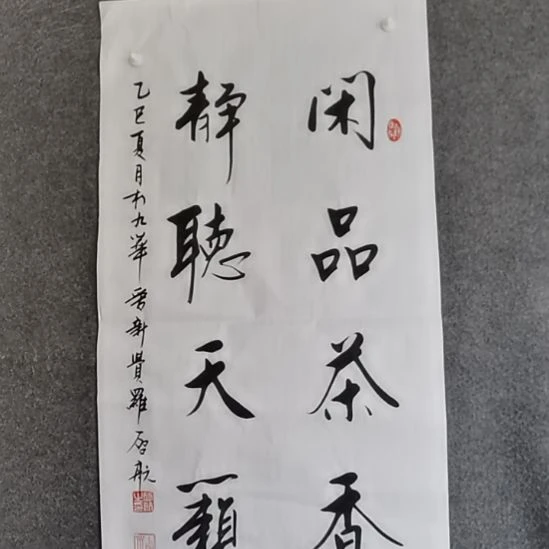 闲品茶香
静聽天籟
乙巳夏月於九華 晋新贵羅启航